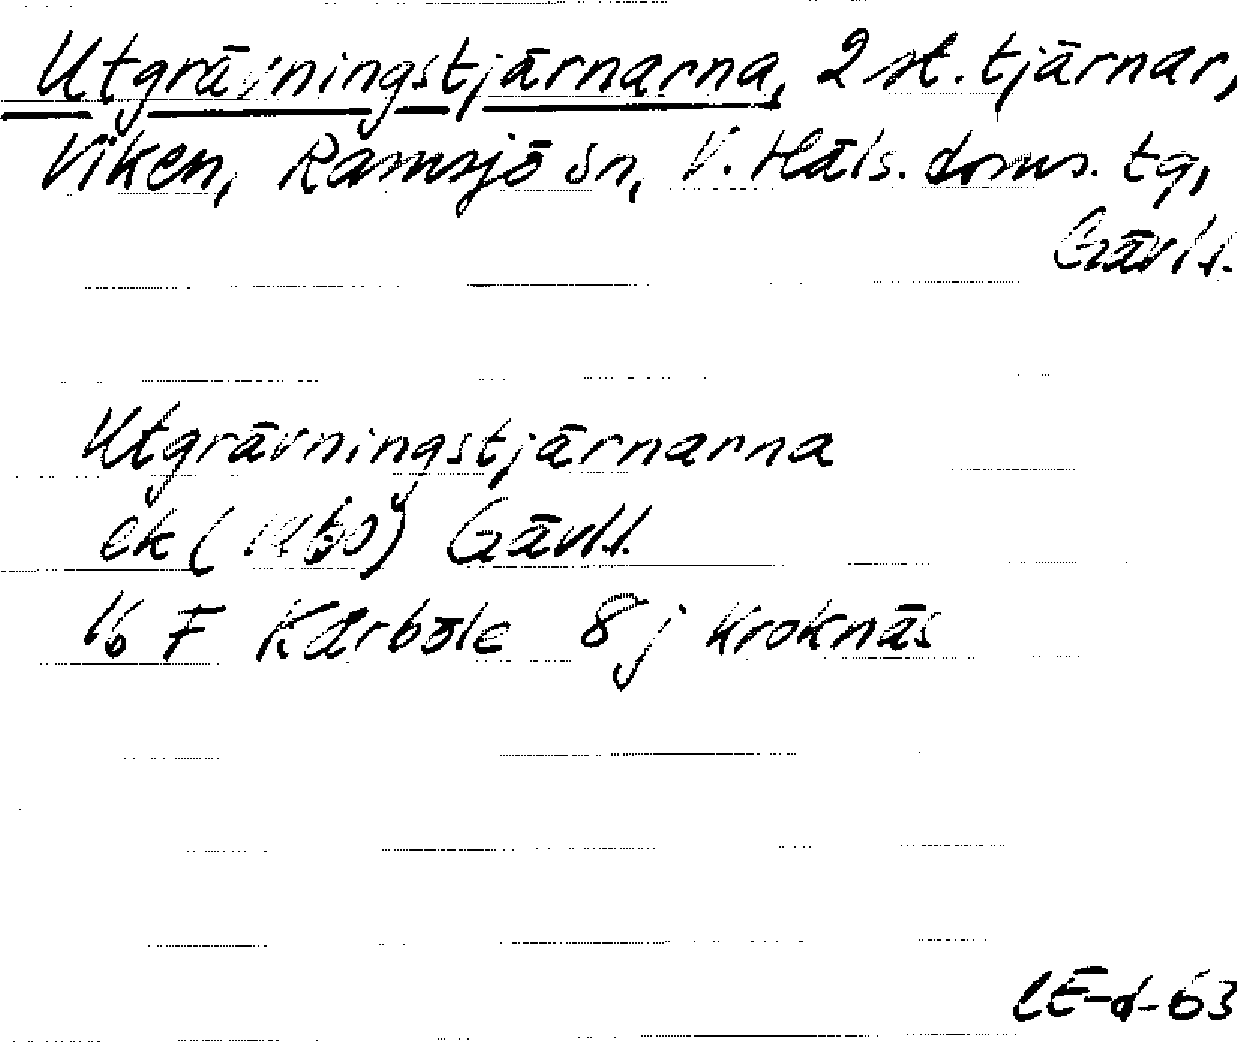 Utgrävningstjärnarna, 2 st. tjärnar,
Viken, Ramsjö sn, V. Häls. doms. tg,
Gävl.l.
Utgrävningstjärnarna
ek (1960) Gävl.l.
16 F Kårböle 8 j Kroknäs
LE-d-63